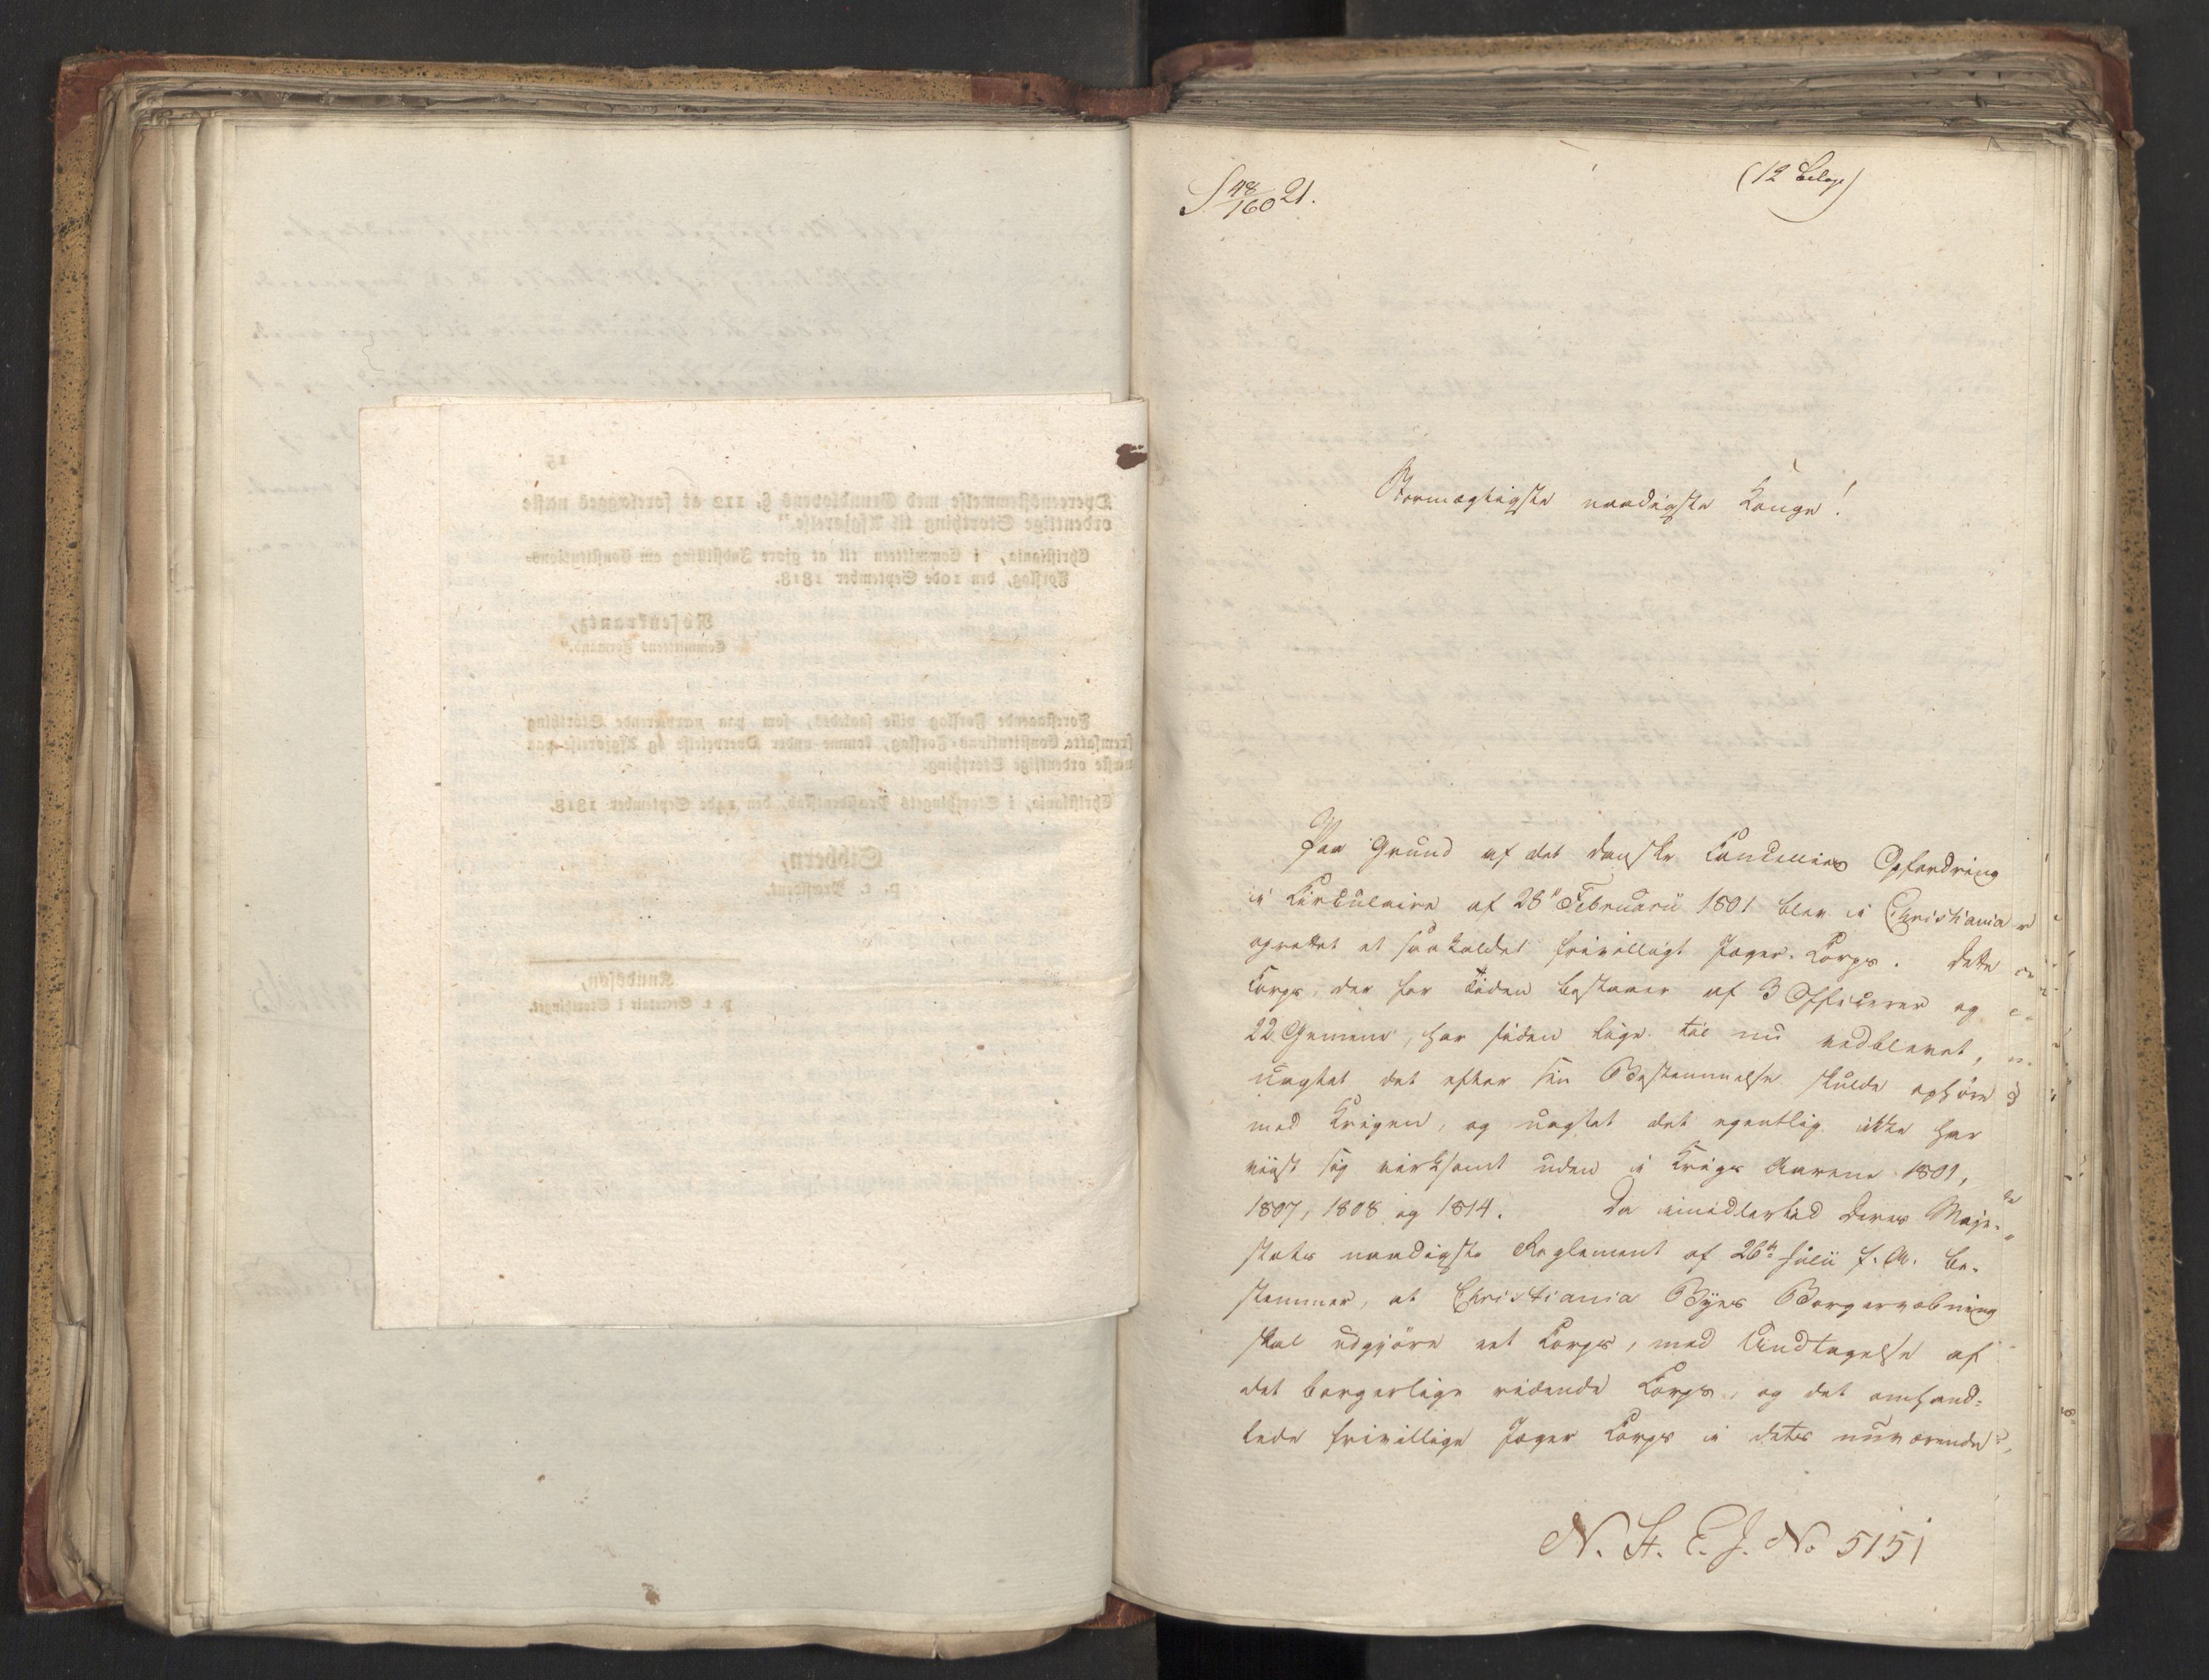 S 48/160 21.
(12 Bilag)
Stormægtigste naadigste Konge!
Paa Grund af det danske Cancellies Opfordring
i Circulaire af 28de Februarii 1801 blev i Christiania
oprettet et saakaldet frivilligt Jæger-Corps. Dette
Corps, der for Tiden bestaaer af 3 Officerer og
22 Gemene, har siden lige til nu vedblevet,
uagtet det efter sin Bestemmelse skulde ophøre
med Krigen, og uagtet det egentlig ikke har
viist sig virksomt uden i Krigs Aarene 1801,
1807, 1808 og 1814. Da imidlertid Deres Maje-
stæts naadigste Reglement af 26de Julii f. A. be-
stemmer, at Christiania Byes Borgervæbning
skal udgjöre eet Corps, med Undtagelse af
det borgerlige ridende Corps, og det omhand-
lede frivillige Jæger Corps i dets nuværende
N. St. E. J. No 5151
15
Overeensstemmelse med Grundlovens §. 112 at forelægges næste
ordentlige Storthing til Afgjørelse."
Christiania, i Committeen til at gjøre Indstilling om Constitutions-
Forslag, den 10de September 1818.
Rosenkrantz,
Committeens Formand."
Forestaaende Forslag ville saaledes, som paa nærværende Storthing
fremsatte Constitutions-Forslag, komme under Overveielse og Afgjørelse paa
næste ordentlige Storthing.
Christiania, i Storthingets Præsidentskab, den 14de September 1818.
Sibbern,
p. t. Præsident.
Knudsen,
p. t. Secretair i Storthinget.